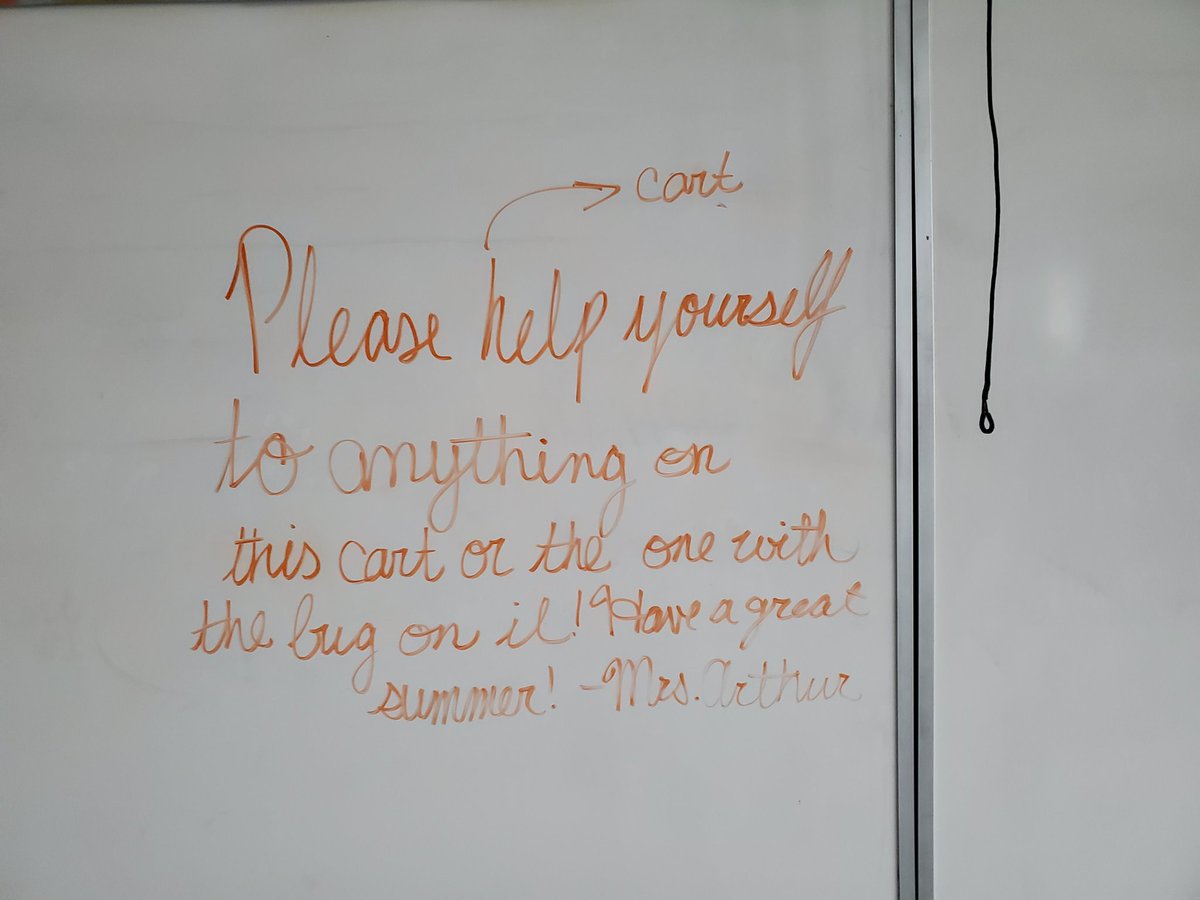 cart
Please help yourself
to anything on
this cart or the one with
the bug on it! Have a great
summer! -Mrs. Arthur